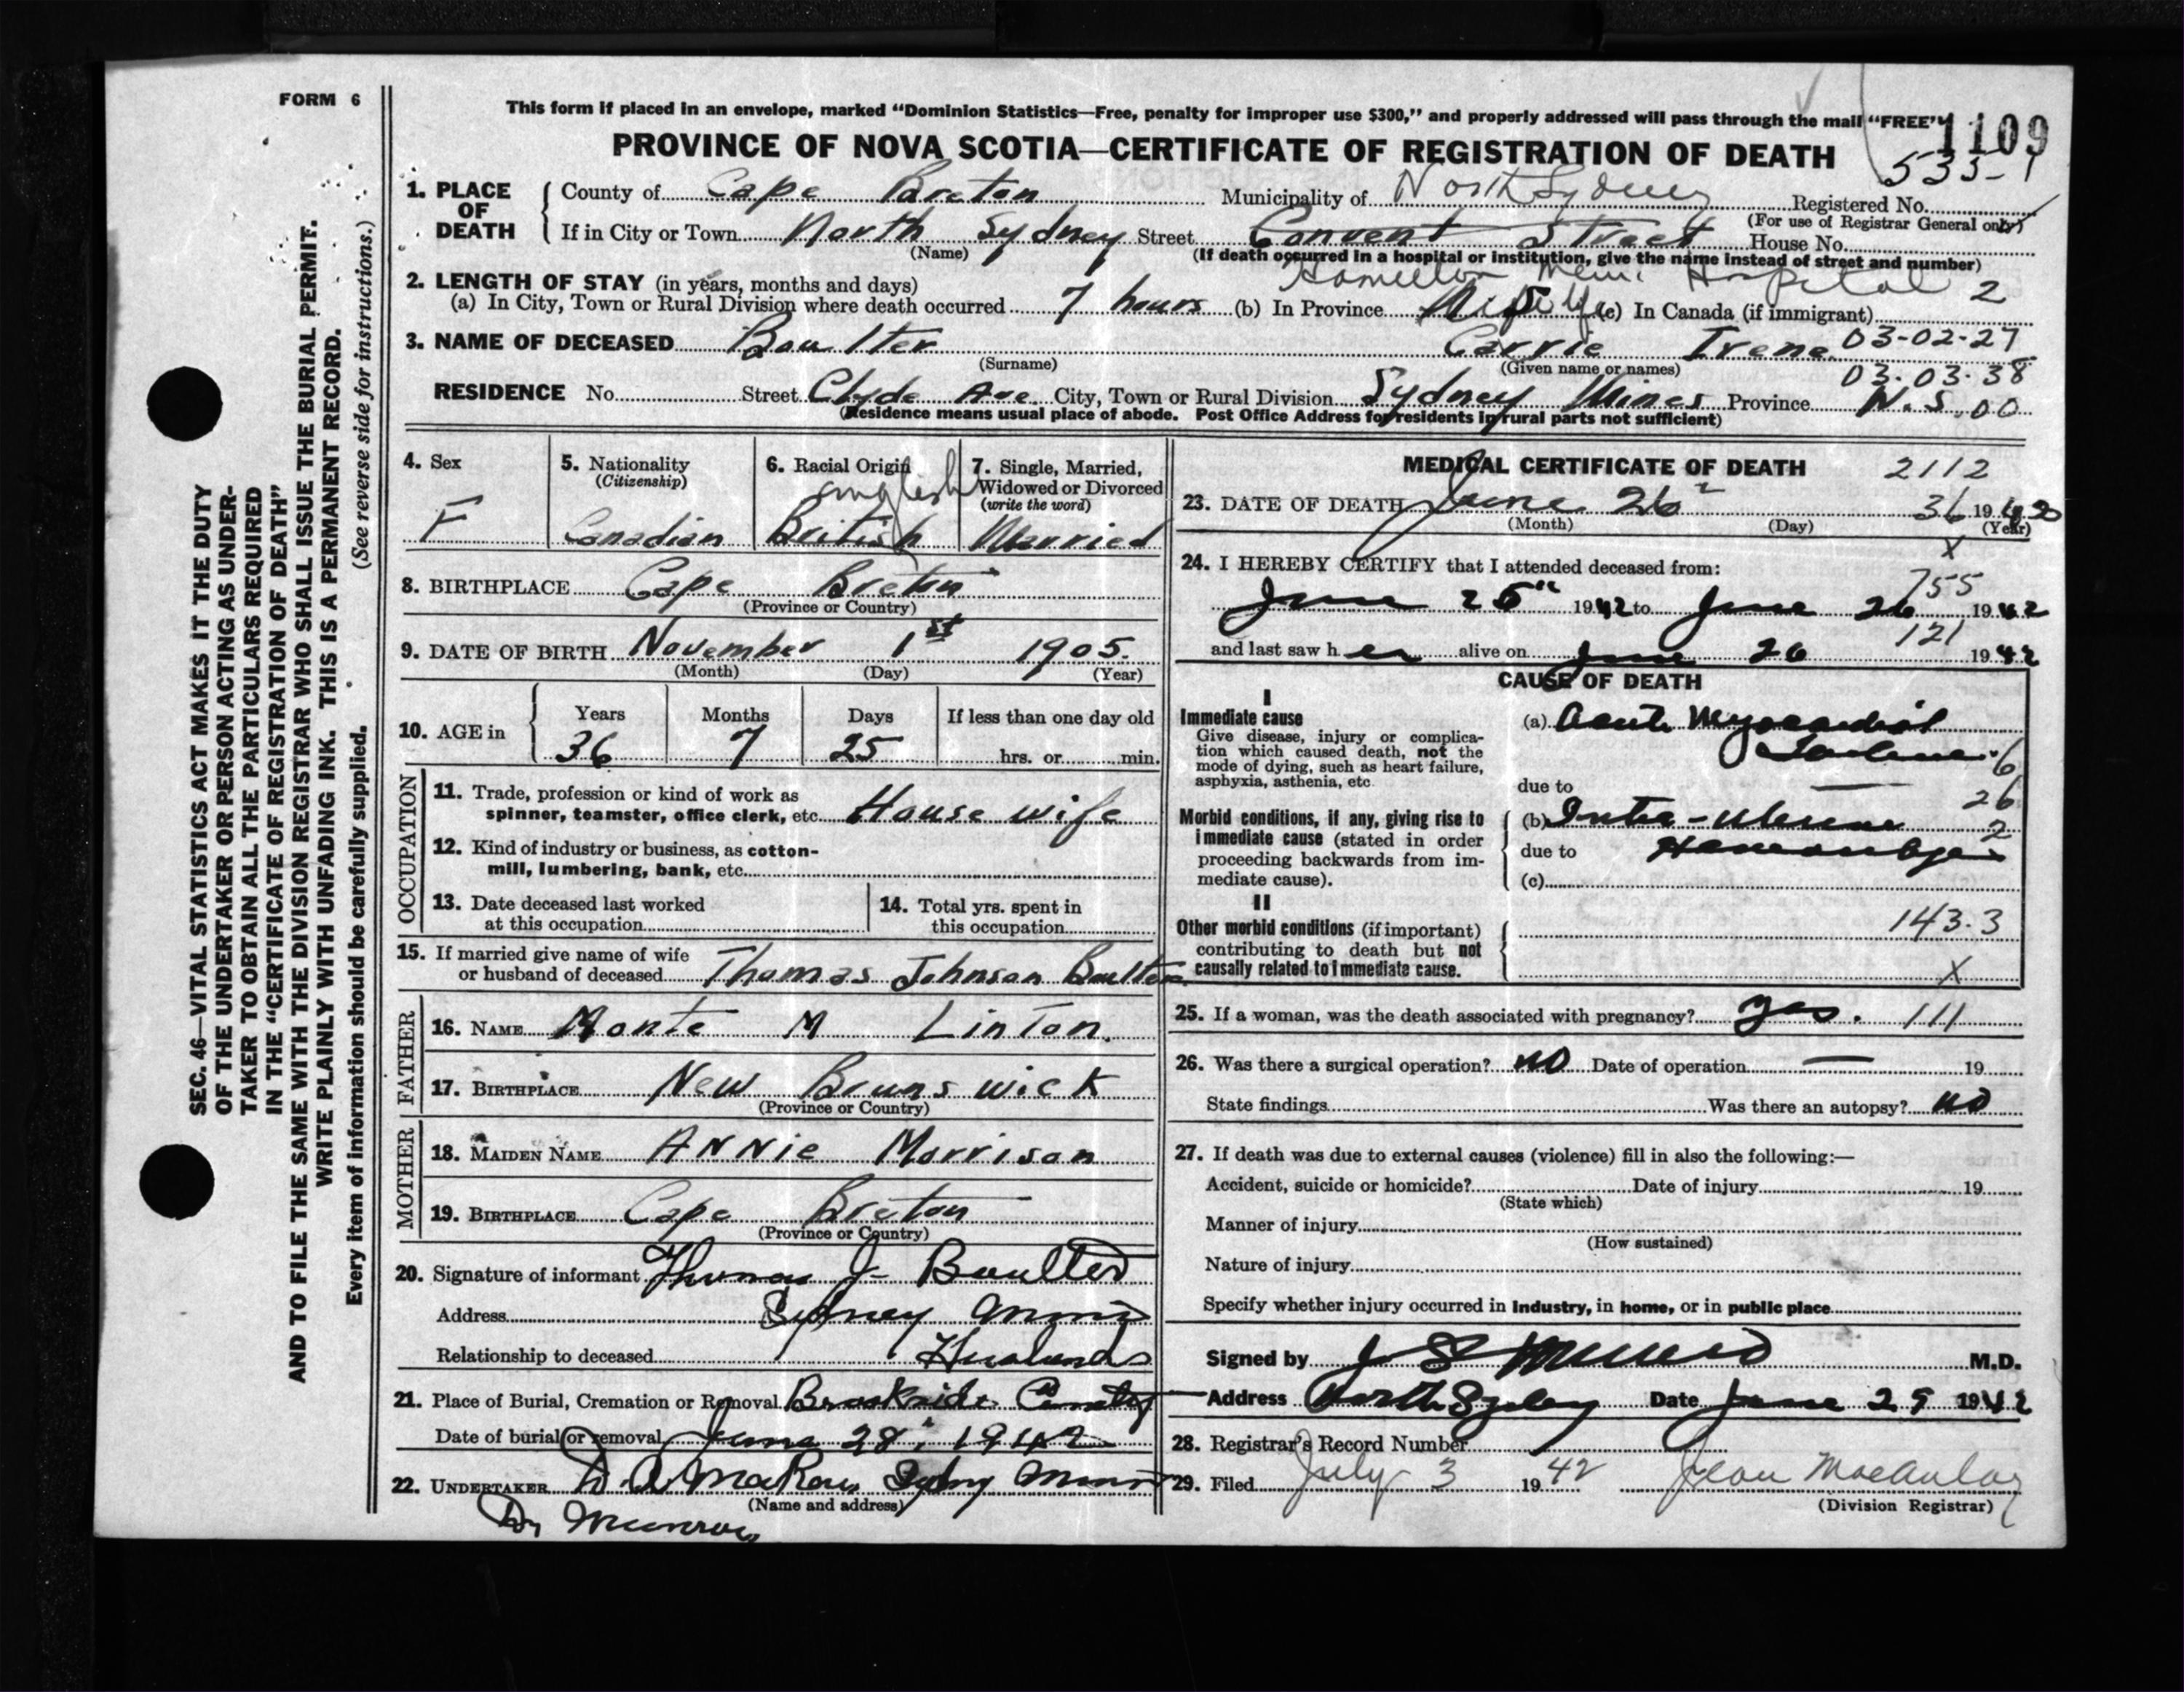 FORM 6
This form if placed in an envelope, marked "Dominion Statistics—Free, penalty for improper use $300," and properly addressed will pass through the mail "FREE"
1109
PROVINCE OF NOVA SCOTIA—CERTIFICATE OF REGISTRATION OF DEATH
535-1
1. PLACE OF DEATH
County of Cape Breton Municipality of North Sydney Registered No.
(For use of Registrar General only)
If in City or Town North Sydney Street Convent Street House No.
(Name) (If death occurred in a hospital or institution, give the name instead of street and number)
Hamilton Mem. Hospital 2
2. LENGTH OF STAY (in years, months and days)
(a) In City, Town or Rural Division where death occurred 7 hours (b) In Province Life (c) In Canada (if immigrant)
3. NAME OF DECEASED Boulter Carrie Irene 03-02-27
(Surname) (Given name or names)
03-03-38
RESIDENCE No. Street Clyde Ave. City, Town or Rural Division Sydney Mines Province N.S. 00
(Residence means usual place of abode. Post Office Address for residents in rural parts not sufficient)
4. Sex F
5. Nationality (Citizenship) Canadian
6. Racial Origin English British
7. Single, Married, Widowed or Divorced (write the word) Married
8. BIRTHPLACE Cape Breton
(Province or Country)
9. DATE OF BIRTH November 1st 1905.
(Month) (Day) (Year)
10. AGE in Years 36 Months 7 Days 25 If less than one day old hrs. or min.
OCCUPATION
11. Trade, profession or kind of work as spinner, teamster, office clerk, etc. House wife
12. Kind of industry or business, as cotton-mill, lumbering, bank, etc.
13. Date deceased last worked at this occupation
14. Total yrs. spent in this occupation
15. If married give name of wife or husband of deceased Thomas Johnson Boulter
FATHER
16. NAME Monte M Linton.
17. BIRTHPLACE New Brunswick
(Province or Country)
MOTHER
18. MAIDEN NAME Annie Morrison
19. BIRTHPLACE Cape Breton
(Province or Country)
20. Signature of informant Thomas J- Boulter
Address Sydney Mines
Relationship to deceased Husband
21. Place of Burial, Cremation or Removal Brookside Cemetery
Date of burial or removal June 28, 1942
22. UNDERTAKER D. A. Sydney Mines
(Name and address)
Dr Munroe
MEDICAL CERTIFICATE OF DEATH 2112
23. DATE OF DEATH June 26 36 19 42
(Month) (Day) (Year)
X
24. I HEREBY CERTIFY that I attended deceased from:
755
June 26 1942 to June 26 1942
121
and last saw her alive on June 26 1942
CAUSE OF DEATH
I
Immediate cause
Give disease, injury or complication which caused death, not the mode of dying, such as heart failure, asphyxia, asthenia, etc.
(a) Acute Myocardial Failure. 6
due to 26
Morbid conditions, if any, giving rise to immediate cause (stated in order proceeding backwards from immediate cause).
(b) Intra-uterine 2
due to Hemorrhage
(c)
II
Other morbid conditions (if important) contributing to death but not causally related to immediate cause.
143.3
X
25. If a woman, was the death associated with pregnancy? yes. 111
26. Was there a surgical operation? no Date of operation — 19
State findings Was there an autopsy? no
27. If death was due to external causes (violence) fill in also the following:—
Accident, suicide or homicide? Date of injury 19
(State which)
Manner of injury
(How sustained)
Nature of injury
Specify whether injury occurred in industry, in home, or in public place
Signed by J S Munro M.D.
Address North Sydney Date June 29 1942
28. Registrar's Record Number
29. Filed July 3 1942 Jean MacAulay
(Division Registrar)
SEC. 46—VITAL STATISTICS ACT MAKES IT THE DUTY
OF THE UNDERTAKER OR PERSON ACTING AS UNDER-
TAKER TO OBTAIN ALL THE PARTICULARS REQUIRED
IN THE "CERTIFICATE OF REGISTRATION OF DEATH"
AND TO FILE THE SAME WITH THE DIVISION REGISTRAR WHO SHALL ISSUE THE BURIAL PERMIT.
WRITE PLAINLY WITH UNFADING INK. THIS IS A PERMANENT RECORD.
Every item of information should be carefully supplied. (See reverse side for instructions.)